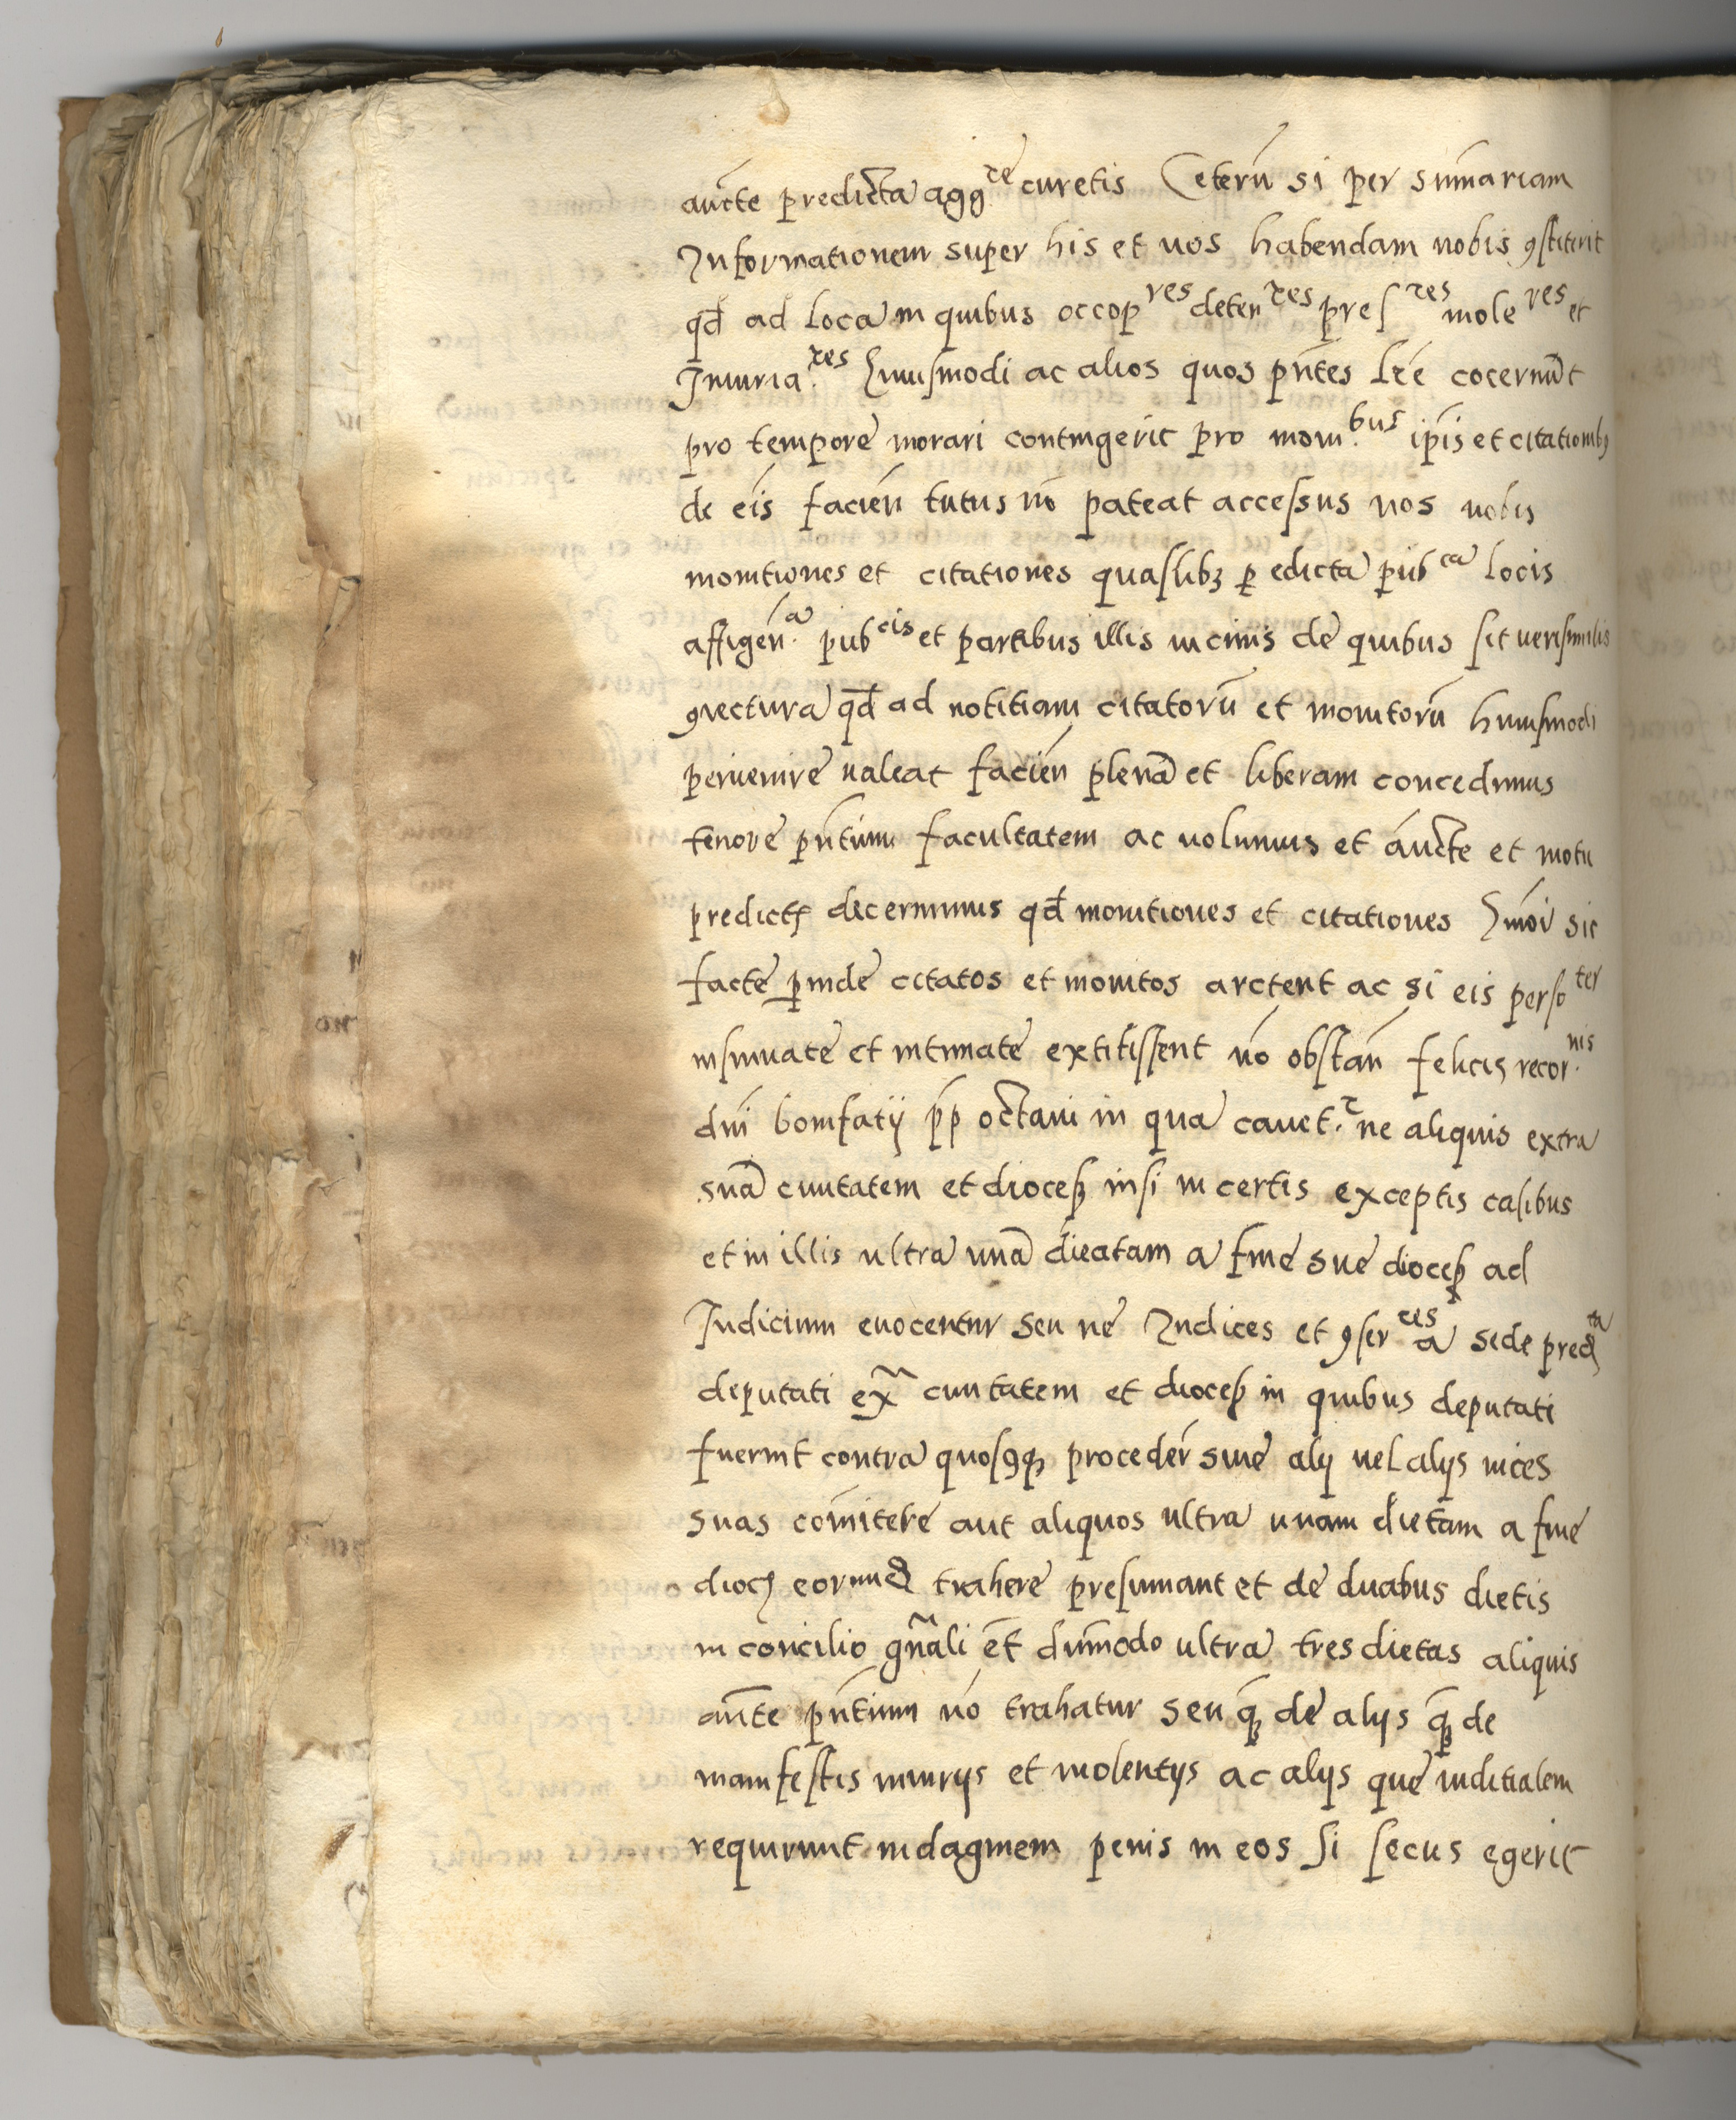 aucte predicta agg.re curetis Ceterū si per sūmariam
Informationem super his et uos habendam nobis ꝯstiterit
qđ ad loca in quibus occup res deten res pres res mole res et
Iniuria.res huiusmodi ac alios quos pn̄tes lr̄e cōcernūt
pro tempore morari contingerit pro moni.bus ip̄is et citationibꝫ
de eis facien̄ tutus nō pateat accessus nos nobis
monitiones et citationes quaslibꝫ ꝑ edicta pub ca locis
affigen̄.a pub cis et partibus illis uicinis de quibus sit uerisimilis
ꝯiectura qđ ad notitiam citatorū et monitorū huiusmodi
peruenire ualeat facien̄ plenā et liberam concedimus
tenore pn̄tium facultatem ac uolumus et aucte et motu
predictꝭ decernimus qđ monitiones et citationes hmōi sic
facte ꝑinde citatos et monitos arctent ac si eis perso ter
insinuate et intimate extitissent nō obstan̄ felicis recor.nis
dn̄i bonifatij pp̄ octaui in qua cauet.r ne aliquis extra
suā ciuitatem et dioceß nisi in certis exceptis casibus
et in illis ultra unā dieatam a fine sue dioceß ad
Iudicium euocentur seu ne Iudices et ꝯser res a sede pred ta
deputati exᵃ ciuitatem et dioceß in quibus deputati
fuerint contra quosꝯqꝫ proceder̄ siue alij uel alijs uices
suas com̄itere aut aliquos ultra unam dietam a fine
diocꝭ eorund trahere presumant et de duabus dietis
in concilio gn̄ali et̄ dūmodo ultra tres dietas aliquis
aucte pn̄tium nō trahatur seu qꝫ de alijs qꝫ de
manifestis iniurijs et uiolentijs ac alijs que iuditialem
requirunt indaginem penis in eos si secus egerit